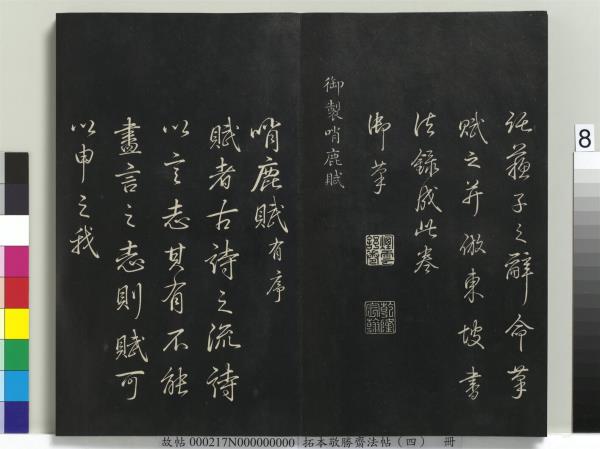 蘇子之辭命筆
賦之并倣東坡書
法錄成此卷
御筆
乾隆宸翰
御製哨鹿賦
哨鹿賦有序
賦者古詩之流詩
以言志其有不能
盡言之志則賦可
以申之我
8
故帖 000217N000000000 拓本敬勝齋法帖（四） 冊